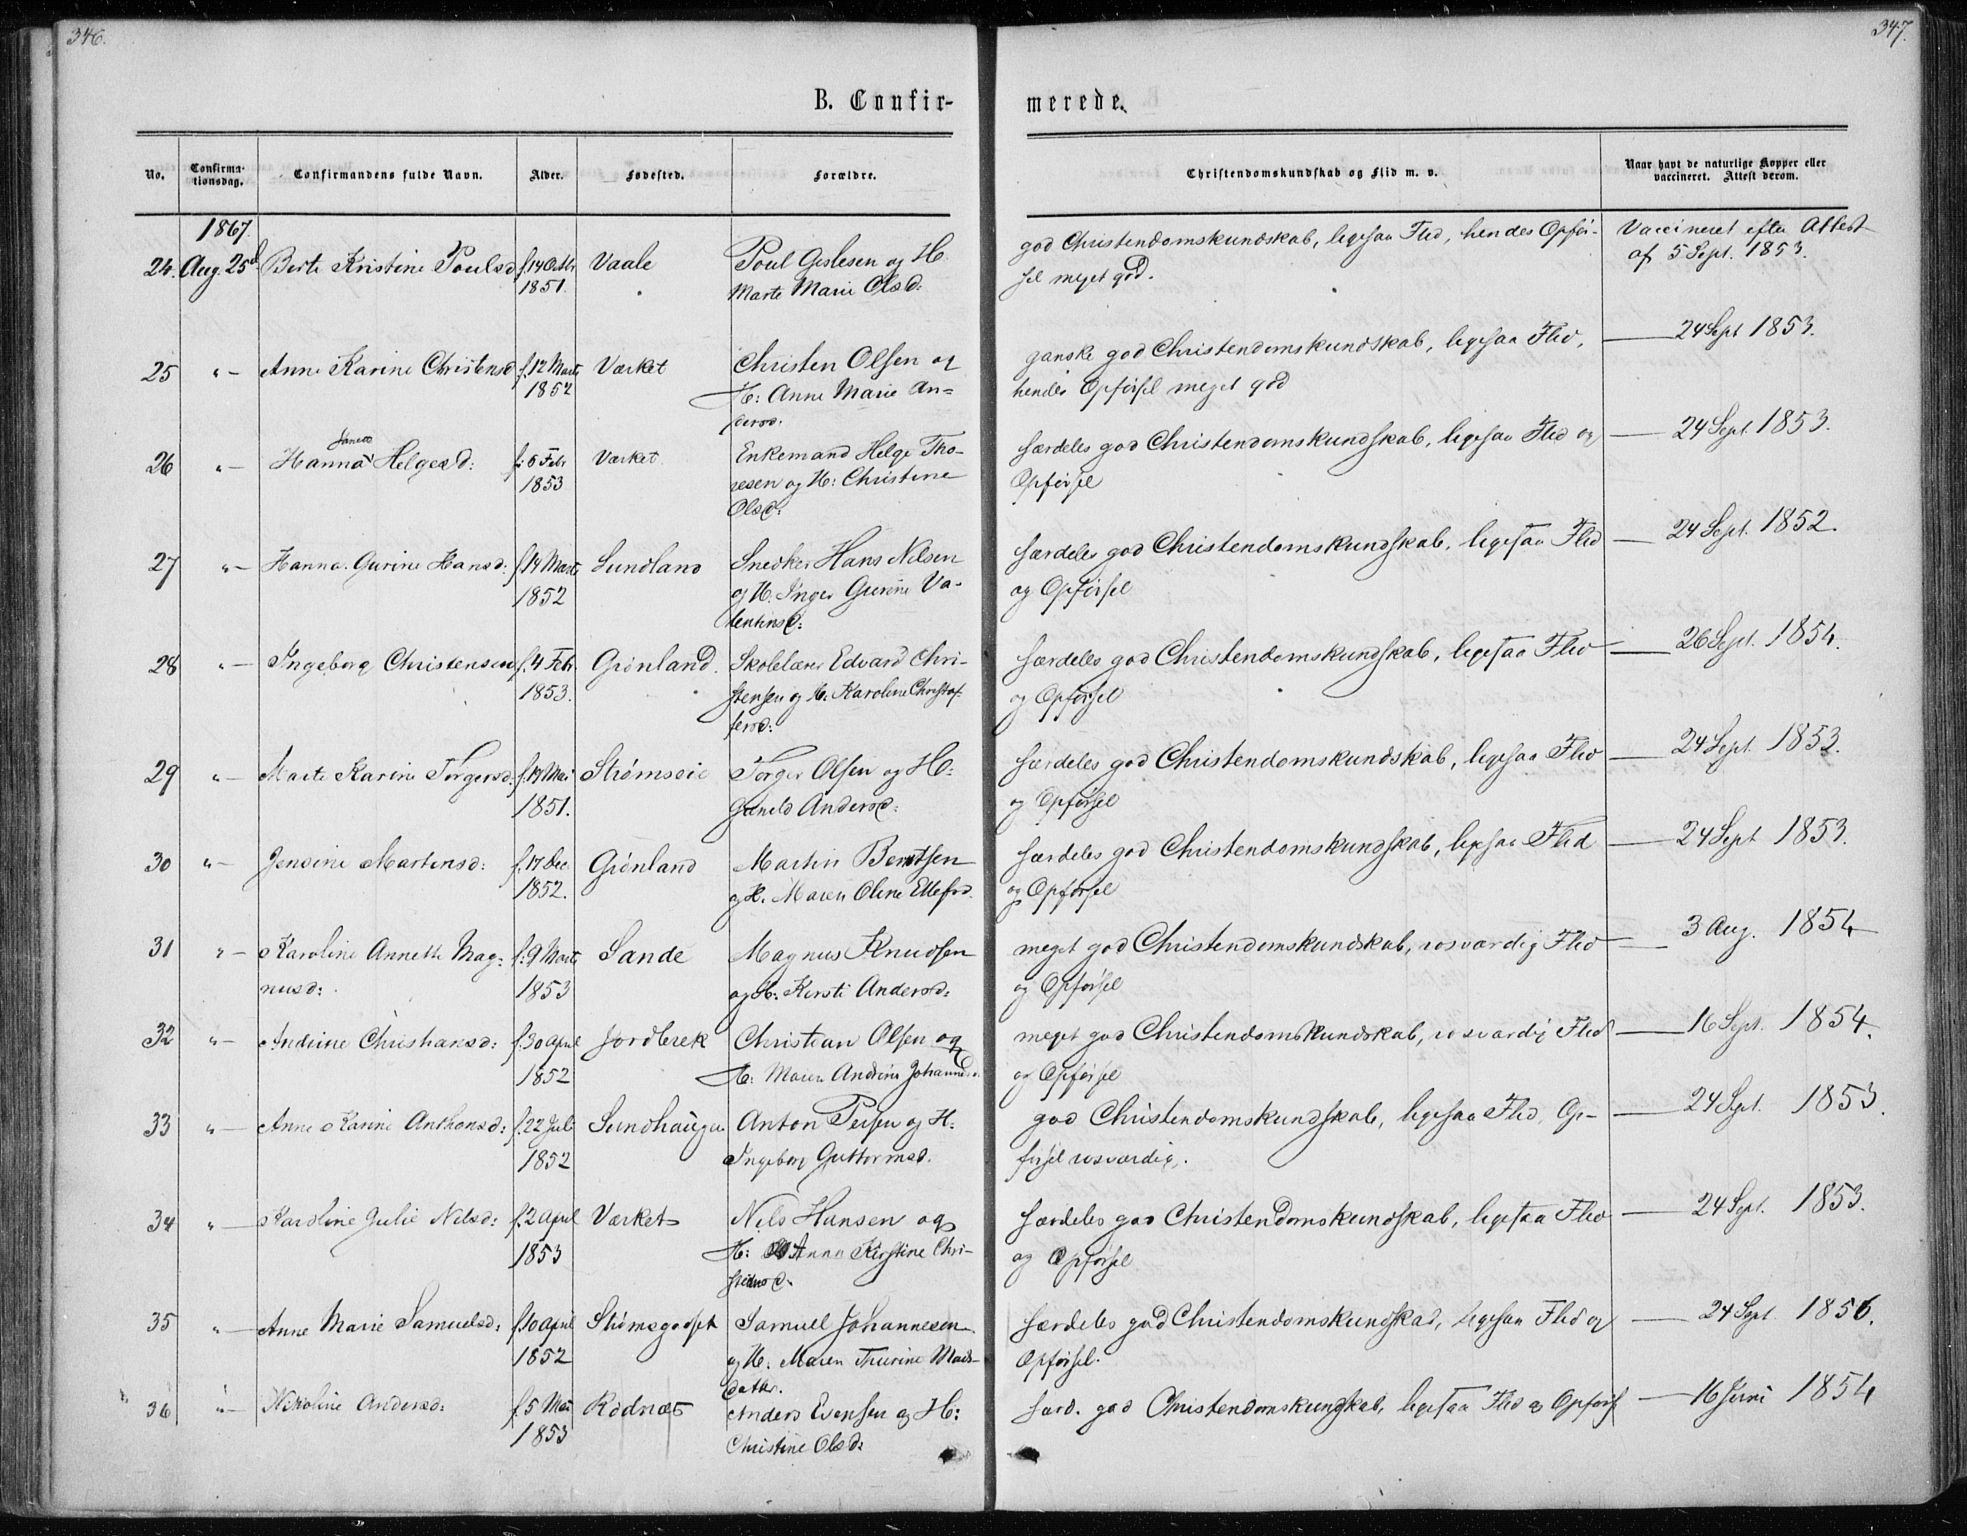 346.
347.
B. Confir-
merede.
No.
Confirma-
tionsdag.
Confirmandens fulde Navn.
Alder.
Fødested.
Forældre.
Christendomskundskab og Flid m. v.
Naar havt de naturlige Kopper eller
vaccineret. Attest derom.
1867.
24. Aug. 25d Berte Kristine Poulsd f. 14 Octbr Vaale Poul Gislesen og H god Christendomskundskab, ligesaa Flid, hendes Opfør- Vaccineret efter Attest
1851. Marte Marie Olsd: sel meget god. af 5 Sept. 1853.
25 "- Anne Karine Christensd f. 12 Marts Værket Christen Olsen og ganske god Christendomskundskab, ligesaa Flid, — 24 Sept 1853.
1852 H: Anne Marie An= hendes Opførsel meget god
dersd:
26 "- Hanna Helgesd: f: 6 Febr Værket Enkemand Helge Tho- særdeles god Christendomskundskab, ligesaa Flid og — 24 Sept. 1853.
1853 resen og H: Christine Opførsel
Olsd:
27 "- Hanna Gurine Hansd: f. 14 Marts Sundland Snedker Hans Nilsen særdeles god Christendomskundskab, ligesaa Flid — 24 Sept. 1852.
1852 og H. Inger Gurine Va- og Opførsel
lentinsd:
28 "- Ingeborg Christensen f. 4 Febr Grønland. Skolelærer Edvard Chri- særdeles god Christendomskundskab, ligesaa Flid — 26 Sept. 1854.
1853. stensen og H. Karoline Christof- og Opførsel
fersd:
29 "- Marte Karine Torgersd: f. 19 Mai Strømsøie Torger Olsen og H: særdeles god Christendomskundskab, ligesaa Flid — 24 Sept. 1853.
1851. Gunild Andersd: og Opførsel
30 "- Jensine Martinsd: f. 17 Dec. Grønland Martin Berntsen særdeles god Christendomskundskab, ligesaa Flid — 24 Sept 1853.
1852. og H. Maren Oline Ellefsd. og Opførsel
31 "- Karoline Annette Mag- f: 9 Marts Sande Magnus Knudsen meget god Christendomskundskab, rosværdig Flid — 3 Aug. 1854
nusd: 1853 og H: Kirsti Andersd: og Opførsel
32 "- Andrine Christiansd: f. 30 April Jordbrek Christian Olsen og meget god Christendomskundskab, rosværdig Flid — 16 Sept. 1854.
1852 H: Maren Andrine Johannesd. og Opførsel
33 "- Anne Karine Anthonsd: f. 22 Juli Sundhaugen Anton Persen og H: god Christendomskundskab, ligesaa Flid, Op- — 24 Sept. 1853.
1852 Ingeborg Guttormsd. førsel rosværdig.
34 "- Karoline Julie Nilsd: f. 2 April Værket Nils Hansen og særdeles god Christendomskundskab, ligesaa Flid — 24 Sept. 1853.
1853 H: Anna Kirstine Chri- og Opførsel
stensd.
35 "- Anne Marie Samuelsd: f. 10 April Strømsgodset Samuel Johannesen særdeles god Christendomskundskab, ligesaa Flid og — 24 Sept. 1856.
1852 og H. Maren Thurine Mads- Opførsel.
datter.
36 "- Nikoline Andersd: f. 5 Mai Rødnæs Anders Evensen og H: særd. god Christendomskundskab, ligesaa Flid og Opførs — 16 Juni 1854
1853 Christine Olsd: